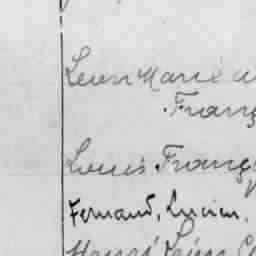 Leon Marie
Franç
Louis Franç
Fernand, Lucien,
Henri Léon